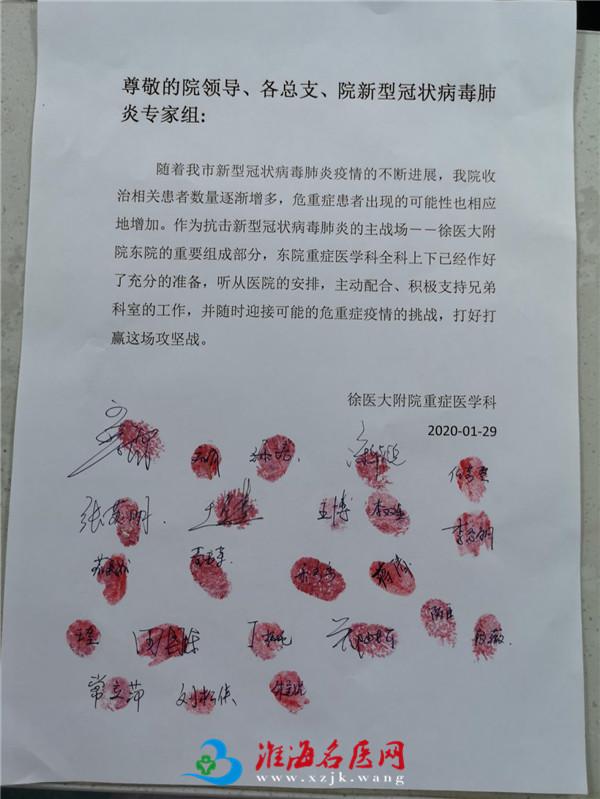 尊敬的院领导、各总支、院新型冠状病毒肺
炎专家组:
随着我市新型冠状病毒肺炎疫情的不断进展，我院收
治相关患者数量逐渐增多，危重症患者出现的可能性也相应
地增加。作为抗击新型冠状病毒肺炎的主战场——徐医大附
院东院的重要组成部分，东院重症医学科全科上下已经作好
了充分的准备，听从医院的安排，主动配合、积极支持兄弟
科室的工作，并随时迎接可能的危重症疫情的挑战，打好打
赢这场攻坚战。
徐医大附院重症医学科
2020-01-29
王博
常立萍 刘松侠
淮海名医网
www.xzjk.wang